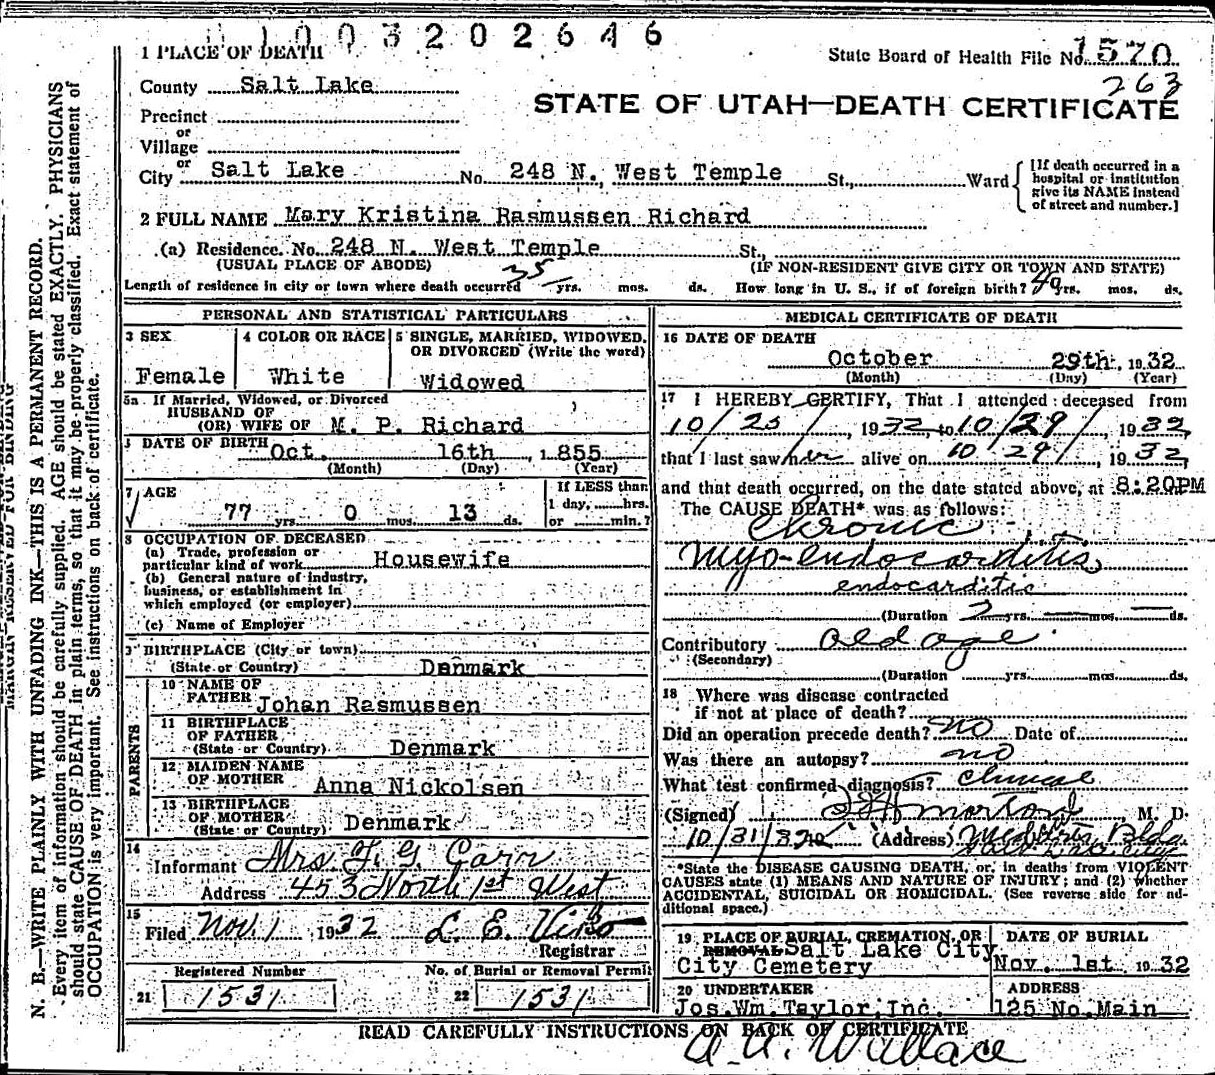 1003202646
1 PLACE OF DEATH
State Board of Health File No. 1570
263
County Salt Lake
STATE OF UTAH—DEATH CERTIFICATE
Precinct
or
Village
or
City Salt Lake No. 248 N. West Temple St., Ward
[If death occurred in a hospital or institution give its NAME instead of street and number.]
2 FULL NAME Mary Kristina Rasmussen Richard
(a) Residence. No. 248 N. West Temple St.,
(USUAL PLACE OF ABODE) (IF NON-RESIDENT GIVE CITY OR TOWN AND STATE)
Length of residence in city or town where death occurred 35 yrs. mos. ds. How long in U. S., if of foreign birth? 49 yrs. mos. ds.
PERSONAL AND STATISTICAL PARTICULARS
3 SEX
Female
4 COLOR OR RACE
White
5 SINGLE, MARRIED, WIDOWED, OR DIVORCED (Write the word)
Widowed
5a If Married, Widowed, or Divorced
HUSBAND OF
(OR) WIFE OF M. P. Richard
DATE OF BIRTH Oct. 16th, 1855
(Month) (Day) (Year)
7 AGE
77 yrs. 0 mos. 13 ds.
If LESS than
1 day, hrs.
or min.?
8 OCCUPATION OF DECEASED
(a) Trade, profession or
particular kind of work Housewife
(b) General nature of industry,
business, or establishment in
which employed (or employer)
(c) Name of Employer
9 BIRTHPLACE (City or town)
(State or Country) Danmark
PARENTS
10 NAME OF
FATHER Johan Rasmussen
11 BIRTHPLACE
OF FATHER
(State or Country) Denmark
12 MAIDEN NAME
OF MOTHER Anna Nickolsen
13 BIRTHPLACE
OF MOTHER
(State or Country) Denmark
14
Informant Mrs. F. G. Carr
Address 453 North 1st West
15
Filed Nov. 1 1932 L. E. Viko
Registrar
Registered Number
21 1531
No. of Burial or Removal Permit
22 1531
MEDICAL CERTIFICATE OF DEATH
16 DATE OF DEATH
October 29th, 1932
(Month) (Day) (Year)
17 I HEREBY CERTIFY, That I attended deceased from
10/25/, 1932, to 10/29/, 1932,
that I last saw her alive on 10/29/, 1932,
and that death occurred, on the date stated above, at 8:20PM
The CAUSE DEATH* was as follows:
Chronic
myo-endocarditis
endocarditis
(Duration 2 yrs. mos. ds.
Contributory Old age
(Secondary)
(Duration yrs. mos. ds.
18 Where was disease contracted
if not at place of death?
Did an operation precede death? No Date of
Was there an autopsy? no
What test confirmed diagnosis? clinical
(Signed) Morton, M. D.
10/31/32 (Address) Bldg.
*State the DISEASE CAUSING DEATH, or, in deaths from VIOLENT
CAUSES state (1) MEANS AND NATURE OF INJURY; and (2) whether
ACCIDENTAL, SUICIDAL OR HOMICIDAL. (See reverse side for additional space.)
19 PLACE OF BURIAL, CREMATION, OR
REMOVAL Salt Lake City
City Cemetery
DATE OF BURIAL
Nov. 1st 1932
20 UNDERTAKER
Jos. Wm. Taylor, Inc.
ADDRESS
125 No. Main
READ CAREFULLY INSTRUCTIONS ON BACK OF CERTIFICATE
A. A. Wallace
MARGIN RESERVED FOR BINDING
N. B.—WRITE PLAINLY WITH UNFADING INK—THIS IS A PERMANENT RECORD.
Every item of information should be carefully supplied. AGE should be stated EXACTLY. PHYSICIANS
should state CAUSE OF DEATH in plain terms, so that it may be properly classified. Exact statement of
OCCUPATION is very important. See instructions on back of certificate.